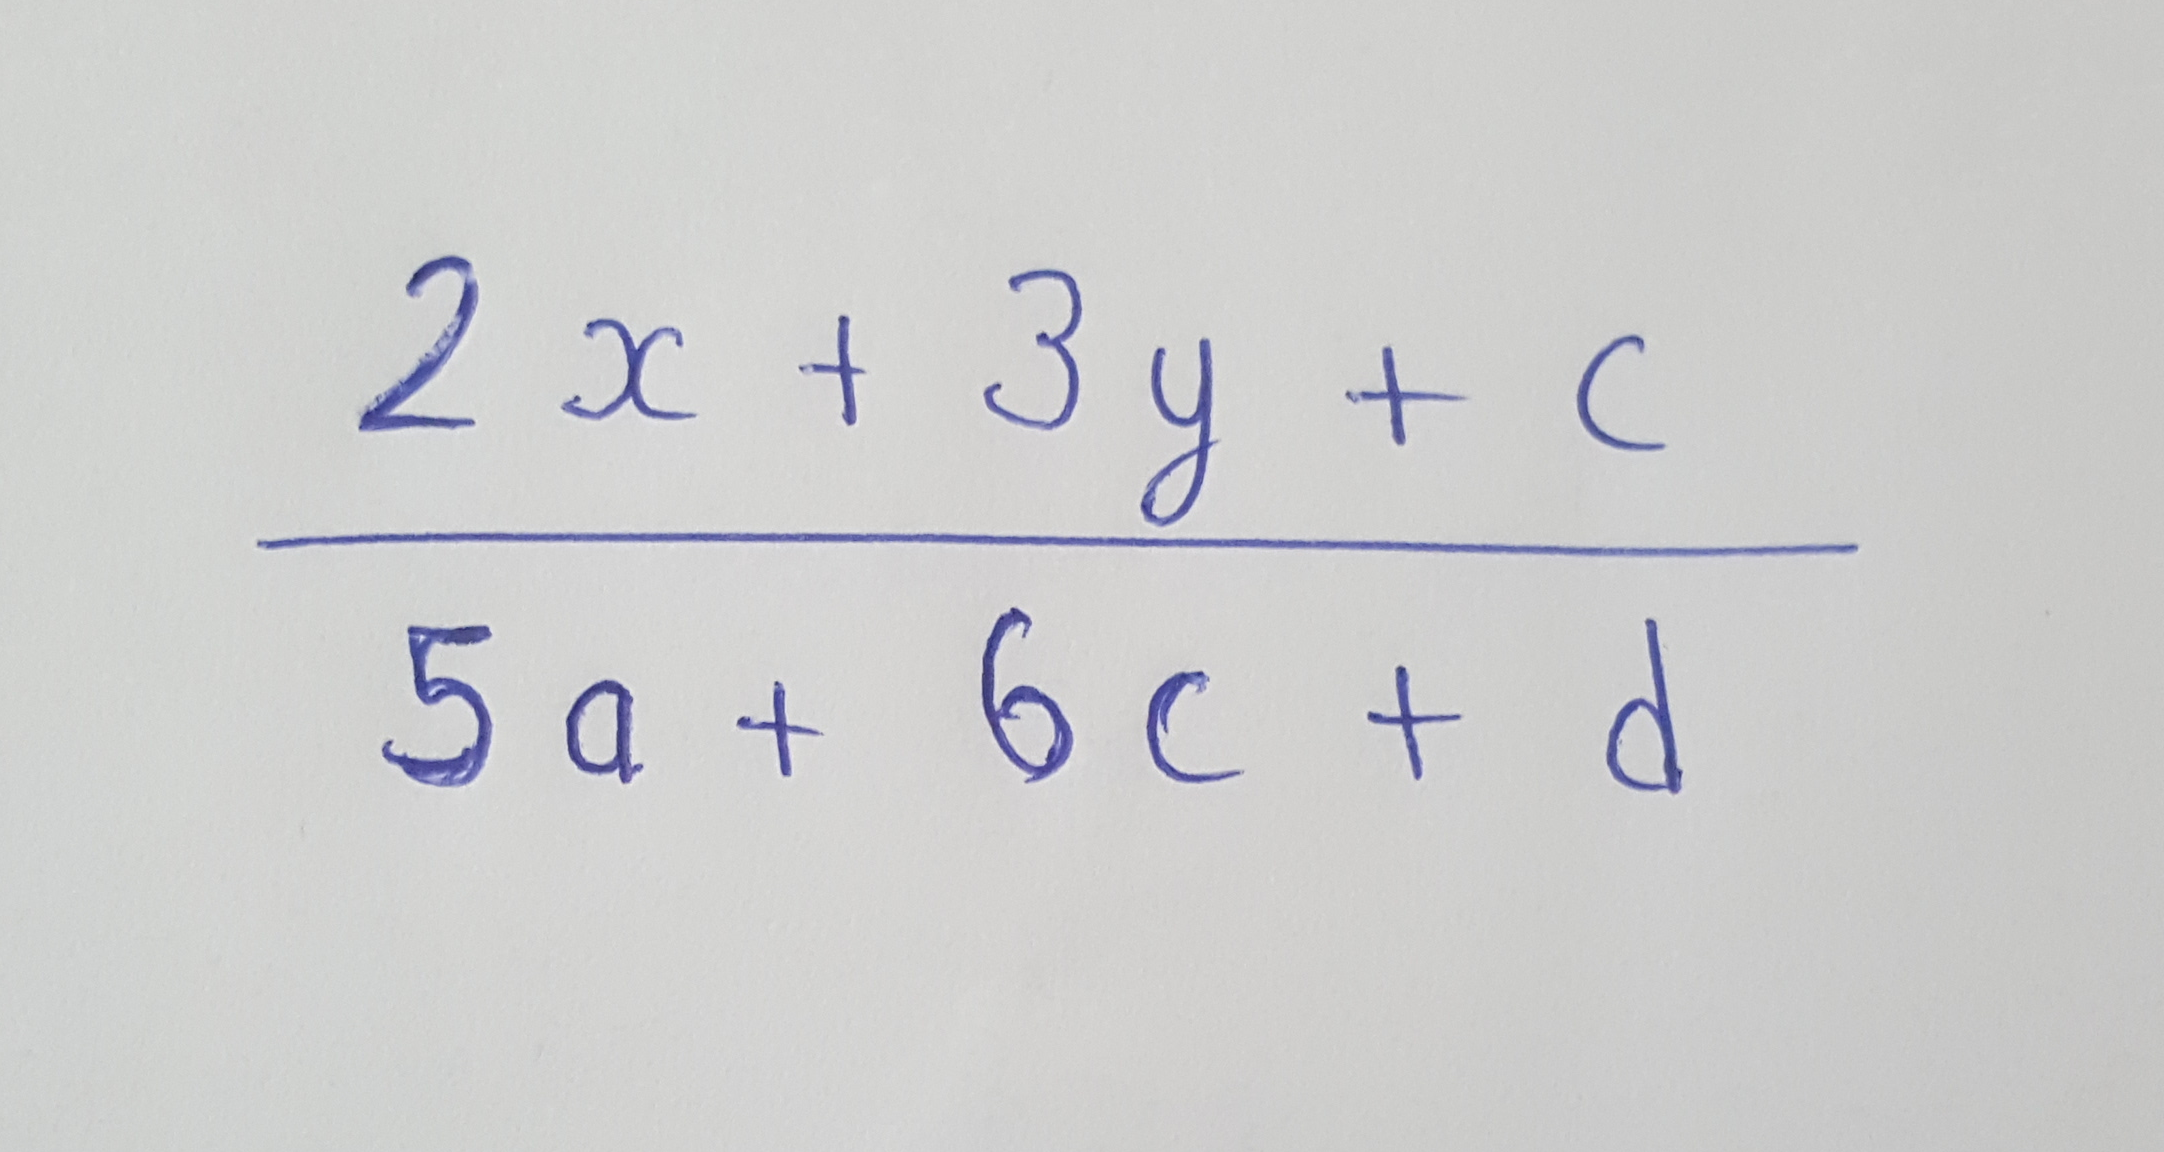 2x + 3y + c
5a + 6c + d